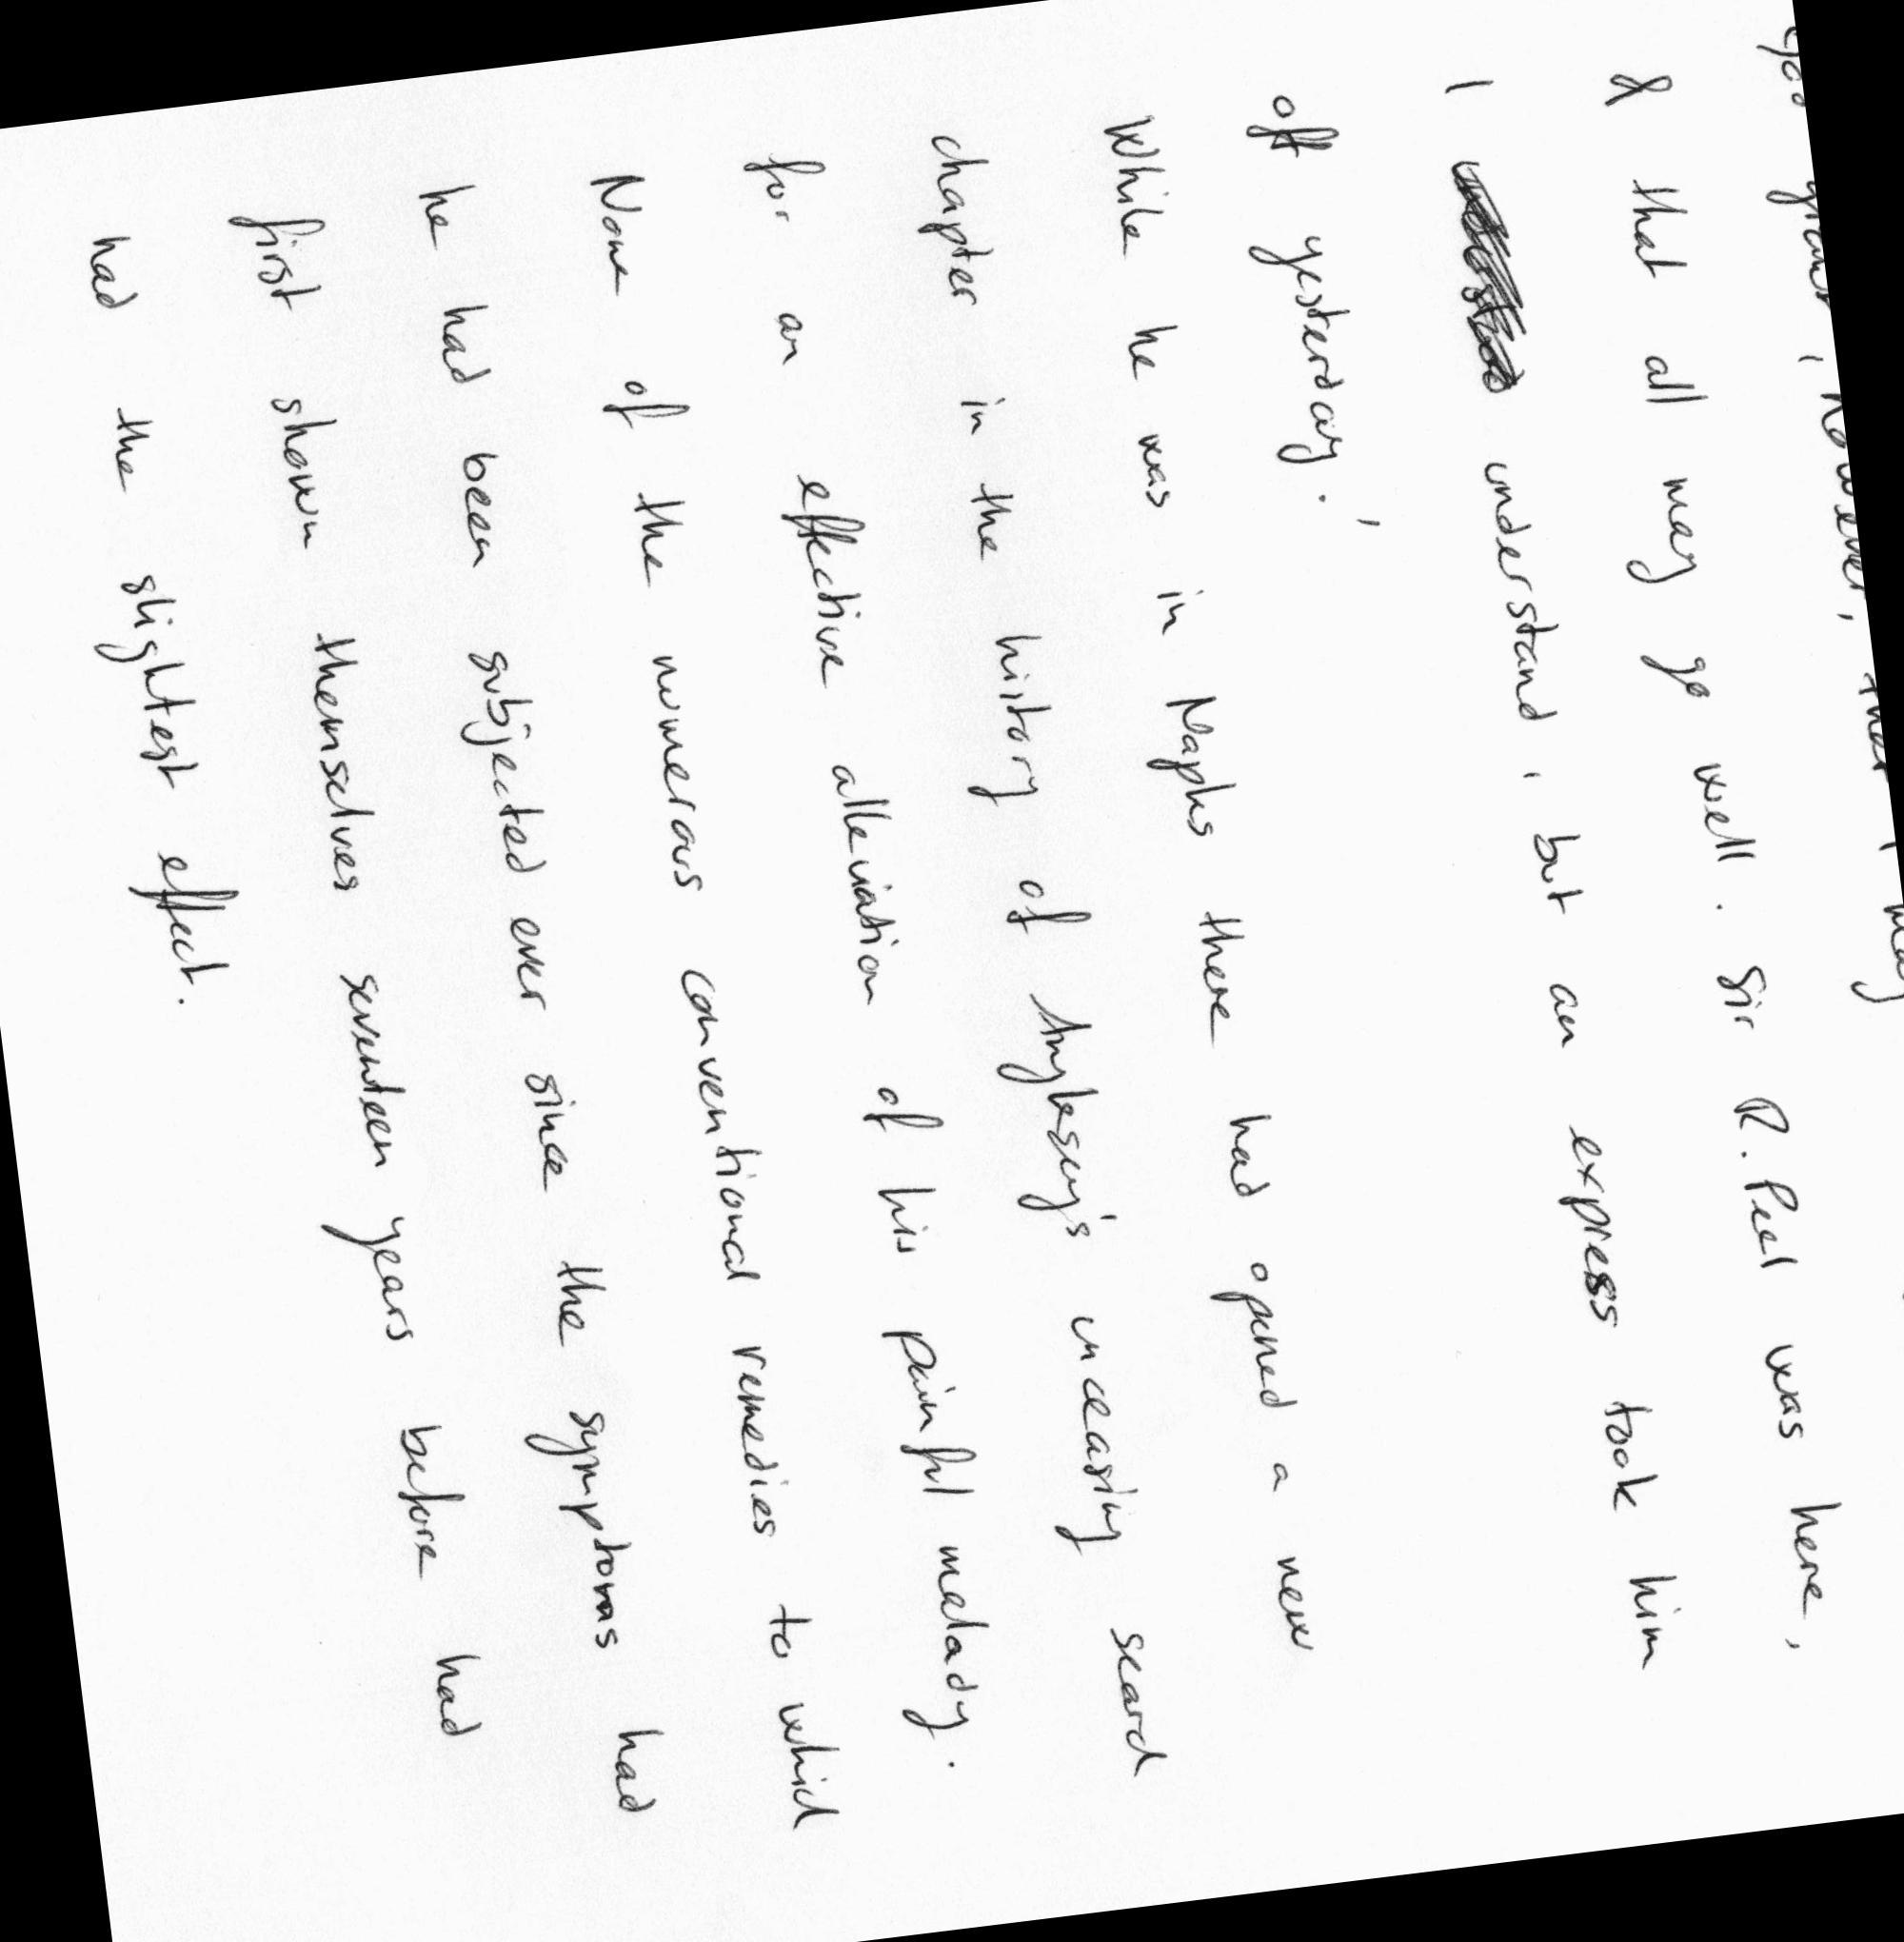 God grant, however, that I may
& that all may go well. Sir R. Peel was here,
I understand, but an express took him
off yesterday.'
While he was in Naples there had opened a new
chapter in the history of Anglesey's unceasing search
for an effective alleviation of his painful malady.
None of the numerous conventional remedies to which
he had been subjected ever since the symptoms had
first shown themselves seventeen years before had
had the slightest effect.